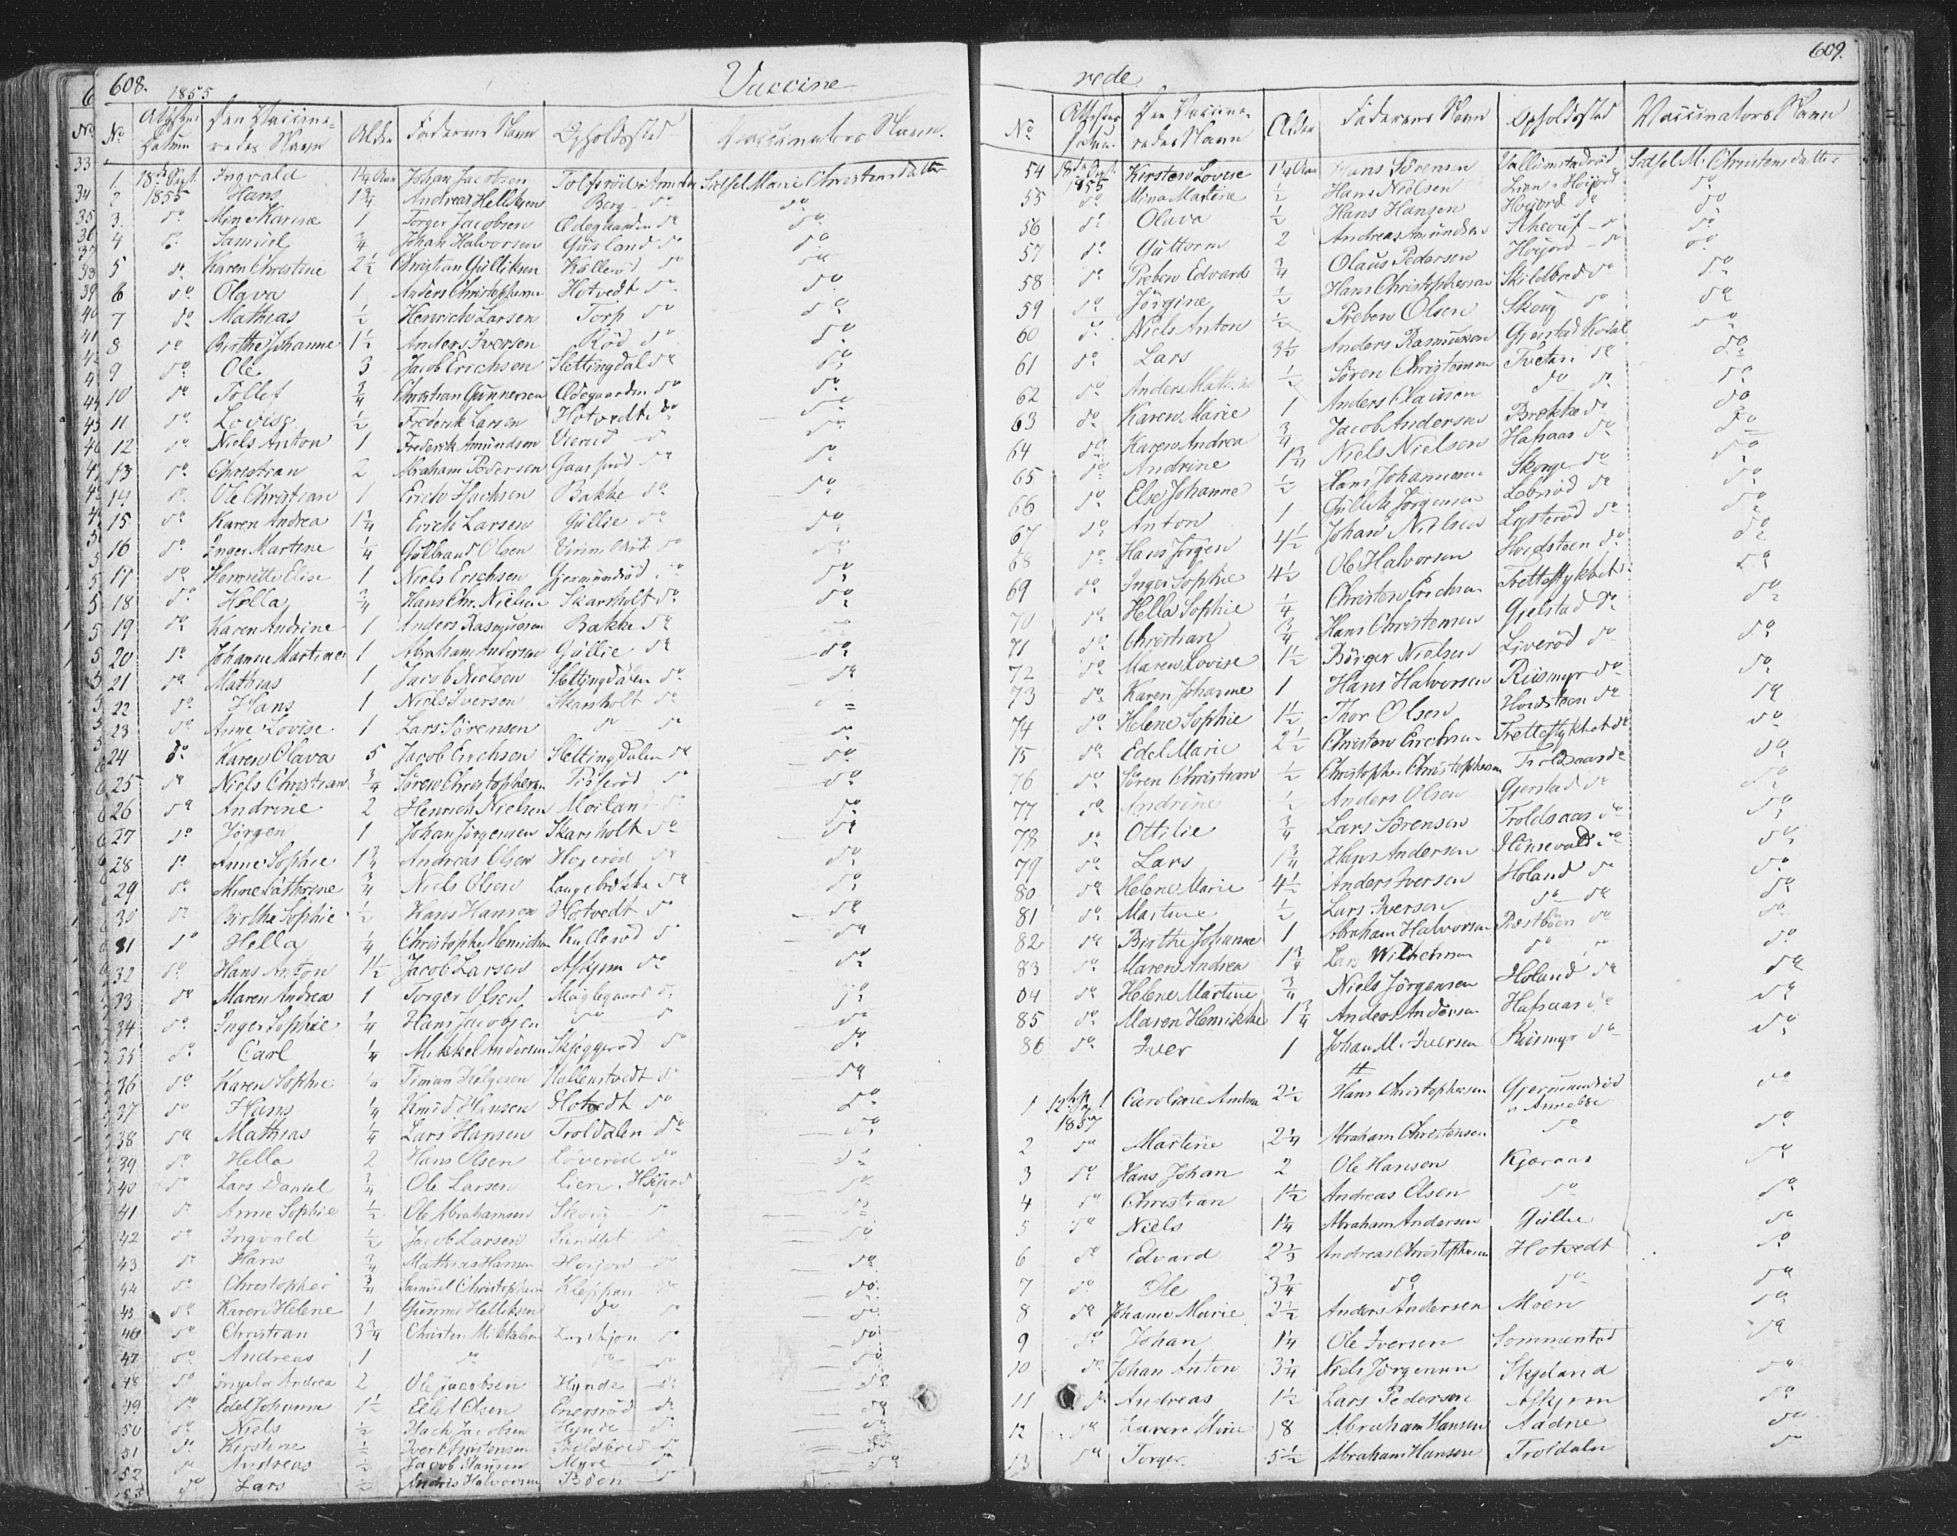 608. 1855 Vaccine
No Attestens Datum Den Vaccineredes Navn Alder Faderens Navn Opholdssted Vaccinators Navn.
1 18de Sept. 1855 Ingvald 1¼ Aar Johan Jacobsen Tolfsröd Sidsel Marie Christensdatter
2 Hans 1¾ Andreas Hellesen Berg do do
3 do Mine Karine 1 Torger Jacobsen Ödegaarden do do
4 Samuel ¾ Johan Halvorsen Gusland do do
5 do Karen Christine 2½ Christian Gulliksen Kullerød do do
6 do Olava 1 Anders Christophersen Hotvedt do do
7 do Mathias ½ Henrich Larsen Torp do do
8 do Birthe Johanne 1½ Anders Iversen Röd do do
9 do Ole 3 Jacob Erichsen Slettingdal do do
10 do Tollef ¾ Christian Gunnersen Ödegaarden do do
11 do Lovise ½ Frederik Larsen Hotvedt do do
12 do Niels Anton 1 Frederik Amundsen Vierud do do
13 do Christian 2 Abraham Pedersen do do
14 do Ole Christian 1 Erich Isachsen Bakke do do
15 do Karen Andrea 1¾ Erich Larsen Gullie do do
16 do Inger Martine ¼ Gulbrand Olsen do do
17 do Henriette Elise 1 Niels Erichsen Gjermundröd do do
18 do Hella ¾ Hans Chr. Nielsen Skarsholt do do
19 do Karen Andrine 1 Anders Rasmussen Bakke do do
20 do Johanne Martine 1 Abraham Andersen Gullie do do
21 do Mathias 1 Jacob Nielsen Slettingdalen do do
22 do Hans 1 Niels Iversen Skarsholt do do
23 do Anne Lovise 1 Lars Sörensen do do do
24 do Karen Olava 5 Jacob Erichsen Slettingdalen do do
25 do Niels Christian ¾ Sören Christophersen do do
26 do Andrine 2 Henrich Nielsen Moiland do do
27 do Jörgen 1 Johan Jörgensen Skarsholt do do
28 do Anne Sophie 1¾ Andreas Olsen do do
29 do Mine Cathrine ¾ Niels Olsen Langebrekke do do
30 do Birthe Sophie ½ Hans Hansen Hotvedt do do
31 do Hella ¼ Christopher Henrichsen Kullerød do do
32 do Hans Anton 1½ Jacob Larsen Askjem do do
33 do Maren Andrea 1 Torger Olsen Moglegaard do do
34 do Inger Sophie ¼ Hans Jacobsen do do do
35 do Carl ¼ Mikkel Andersen Skjeggerød do do
36 do Karen Sophie ¼ Timan Helgesen Hallenstvedt do do
37 do Hans ¼ Knud Hansen Hotvedt do do
38 do Mathias ¼ Lars Hansen Troldalen do do
39 do Hella 2 Hans Olsen Löveröd do do
40 do Lars Daniel ¾ Ole Larsen Lien i Höijord do
41 do Anne Sophie ½ Ole Abrahamsen Skoug do do
42 do Ingvald ½ Jacob Larsen Sundset do do
43 do Hans ¾ Mathias Hansen Höijord do do
44 do Christopher ¾ Samuel Christophersen Kleppan do do
45 do Karen Helene 1 Gunner Hellesen do do do
46 do Christian 3¾ Christen Mikkelsen do do
47 do Andreas 1 do do do do
48 do Andrea 2 Ole Jacobsen Hynde do do
49 do Edel Johanne 1½ Ellef Olsen do do
50 do Niels ½ Isach Jacobsen Hynde do do
51 do Kirstine ½ Iver Christensen Skildbred do do
52 do Andreas ½ Jacob Hansen Myre do do
53 do Lars ½ Anders Halvorsen Böen do

rede 609.
No Attestens Datum Den Vaccineredes Navn Alder Faderens Navn Opholdssted Vaccinators Navn
54 18de Sept. 1855 Kirsten Lovise 1¼ Aar Hans Sörensen Sidsel M. Christensdatter
55 do Mina Martine ½ Hans Nielsen Lien i Höijord do
56 do Olava ½ Hans Hansen Höijord do do
57 do Guttorm 2 Andreas Amundsen do do
58 do Preben Edvard ¾ Olaus Pedersen Höijord do do
59 do Jörgine ½ Hans Christophersen Skildbred do do
60 do Niels Anton ½ Preben Olsen Skoug do do
61 do Lars 3½ Anders Rasmussen Gjerstad Kodal do
62 do Anders ½ Sören Christensen Tveten do do
63 do Karen Marie 1 Anders Clausen do do do
64 do Karen Andrea ¾ Jacob Andersen Brekke do do
65 do Andrine 1¾ Niels Nielsen Hasaas do do
66 do Else Johanne ½ Hans Johannesen Skorge do do
67 do Anton 1 Gullik Jörgensen Lebsröd do do
68 do Hans Jörgen 4½ Johan Nielsen Lysteröd do do
69 do Inger Sophie 4½ Ole Halvorsen Hvidsteen do do
70 do Hella Sophie ¼ Christen Erichsen Trettestykket do do
71 do Christian ¾ Hans Christensen Gjelstad do do
72 do Maren Lovise 1½ Börger Nielsen Liveröd do do
73 do Karen Johanne 1 Hans Halvorsen Riismyr do do
74 do Helene Sophie 1½ Thor Olsen Hvidsteen do do
75 do Edel Marie 2½ Christen Erichsen Trettestykket do do
76 do Sören Christian ½ Christopher Christophersen Troldsaas do do
77 do Andrine ½ Anders Olsen Gjerstad do do
78 do Ottilie ¾ Lars Sörensen Troldsaas do do
79 do Lars 1¾ Hans Andersen Hinsevald do do
80 do Helene Marie 4½ Anders Iversen Holand do do
81 do Martine ½ Lars Iversen do do do
82 do Birthe Johanne 1 Abraham Halvorsen Præstbøen do do
83 do Maren Andrea 1¾ Lars Wilhelmsen do do do
84 do Helene Martine ¾ Niels Jörgensen Holand do do
85 do Maren Henrikke 1¾ Anders Andersen Hasaas do do
86 do Iver 1 Johan M. Iversen Riismyr do do
1 1857 Caroline Andrea 2½ Hans Christophersen Gjermundröd i Annebo do
2 do Martine 2¼ Abraham Christensen do do
3 do Hans Johan 2 Ole Hansen Kjæraas do
4 do Christian 1½ Andreas Olsen do do
5 do Niels 1¼ Abraham Andersen Gullie do
6 do Edvard 2⅓ Andreas Christophersen Hotvedt do
7 do Ole 3¼ do do do
8 do Johanne Marie 2½ Anders Andersen Moen do
9 do Johan 1¼ Ole Iversen Sommerstad do
10 do Johan Anton 3¼ Niels Jörgensen Skjeland do
11 do Andreas 1½ Lars Pedersen Askjem do
12 do Karen Mine 8 Abraham Hansen Aadne do
13 do Torger 5½ Abraham Hansen Troldalen do